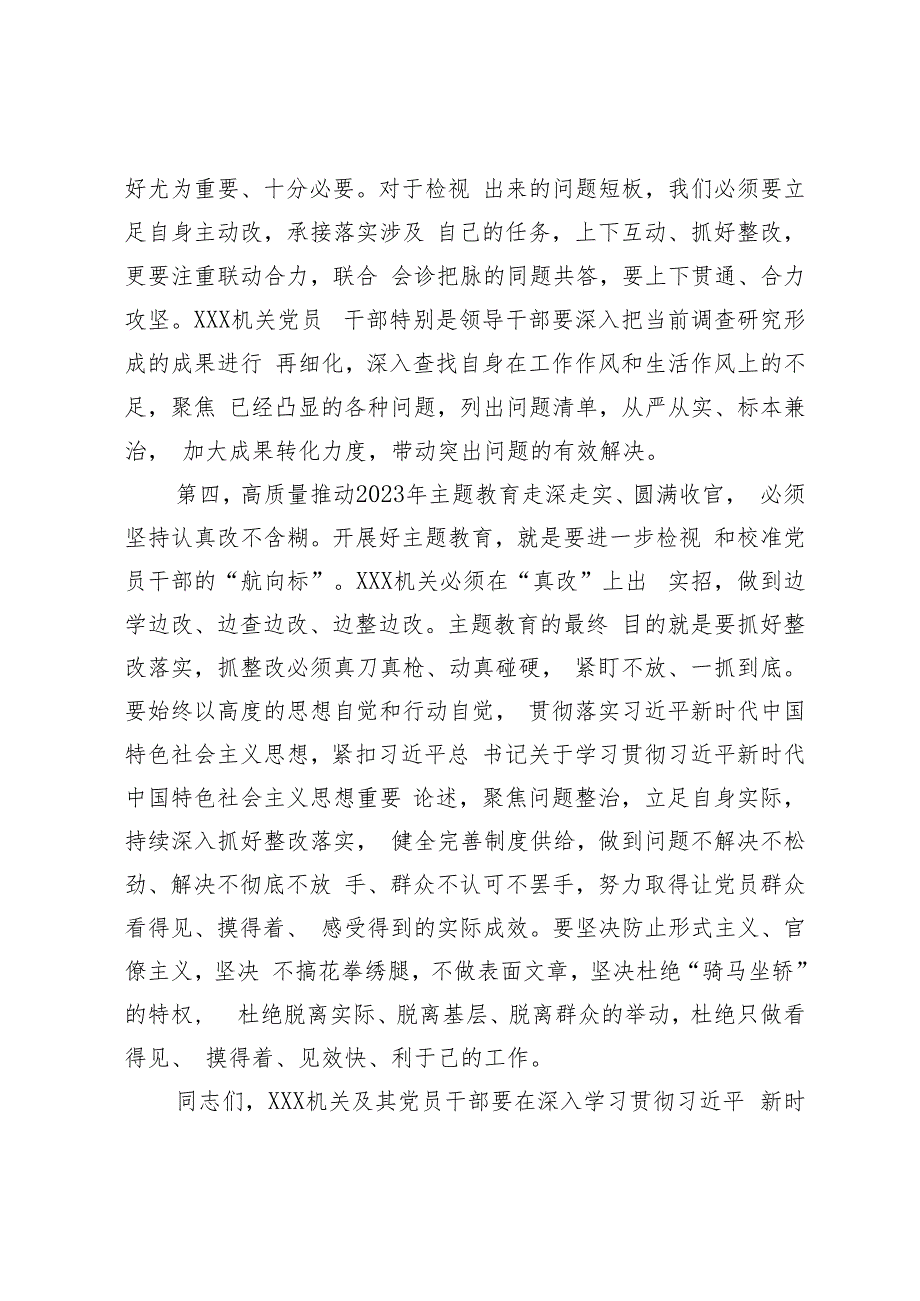 好尤为重要、十分必要。对于检视 出来的问题短板，我们必须要立
足自身主动改，承接落实涉及 自己的任务，上下互动、抓好整改，
更要注重联动合力，联合 会诊把脉的同题共答，要上下贯通、合力
攻坚。XXX机关党员 干部特别是领导干部要深入把当前调查研究形
成的成果进行 再细化，深入查找自身在工作作风和生活作风上的不
足，聚焦 已经凸显的各种问题，列出问题清单，从严从实、标本兼
治， 加大成果转化力度，带动突出问题的有效解决。
第四，高质量推动2023年主题教育走深走实、圆满收官， 必须
坚持认真改不含糊。开展好主题教育，就是要进一步检视 和校准党
员干部的“航向标”。XXX机关必须在“真改”上出 实招，做到边
学边改、边查边改、边整边改。主题教育的最终 目的就是要抓好整
改落实，抓整改必须真刀真枪、动真碰硬， 紧盯不放、一抓到底。
要始终以高度的思想自觉和行动自觉， 贯彻落实习近平新时代中国
特色社会主义思想，紧扣习近平总 书记关于学习贯彻习近平新时代
中国特色社会主义思想重要 论述，聚焦问题整治，立足自身实际，
持续深入抓好整改落实， 健全完善制度供给，做到问题不解决不松
劲、解决不彻底不放 手、群众不认可不罢手，努力取得让党员群众
看得见、摸得着、 感受得到的实际成效。要坚决防止形式主义、官
僚主义，坚决 不搞花拳绣腿，不做表面文章，坚决杜绝“骑马坐轿”
的特权， 杜绝脱离实际、脱离基层、脱离群众的举动，杜绝只做看
得见、 摸得着、见效快、利于己的工作。
同志们，XXX机关及其党员干部要在深入学习贯彻习近平 新时